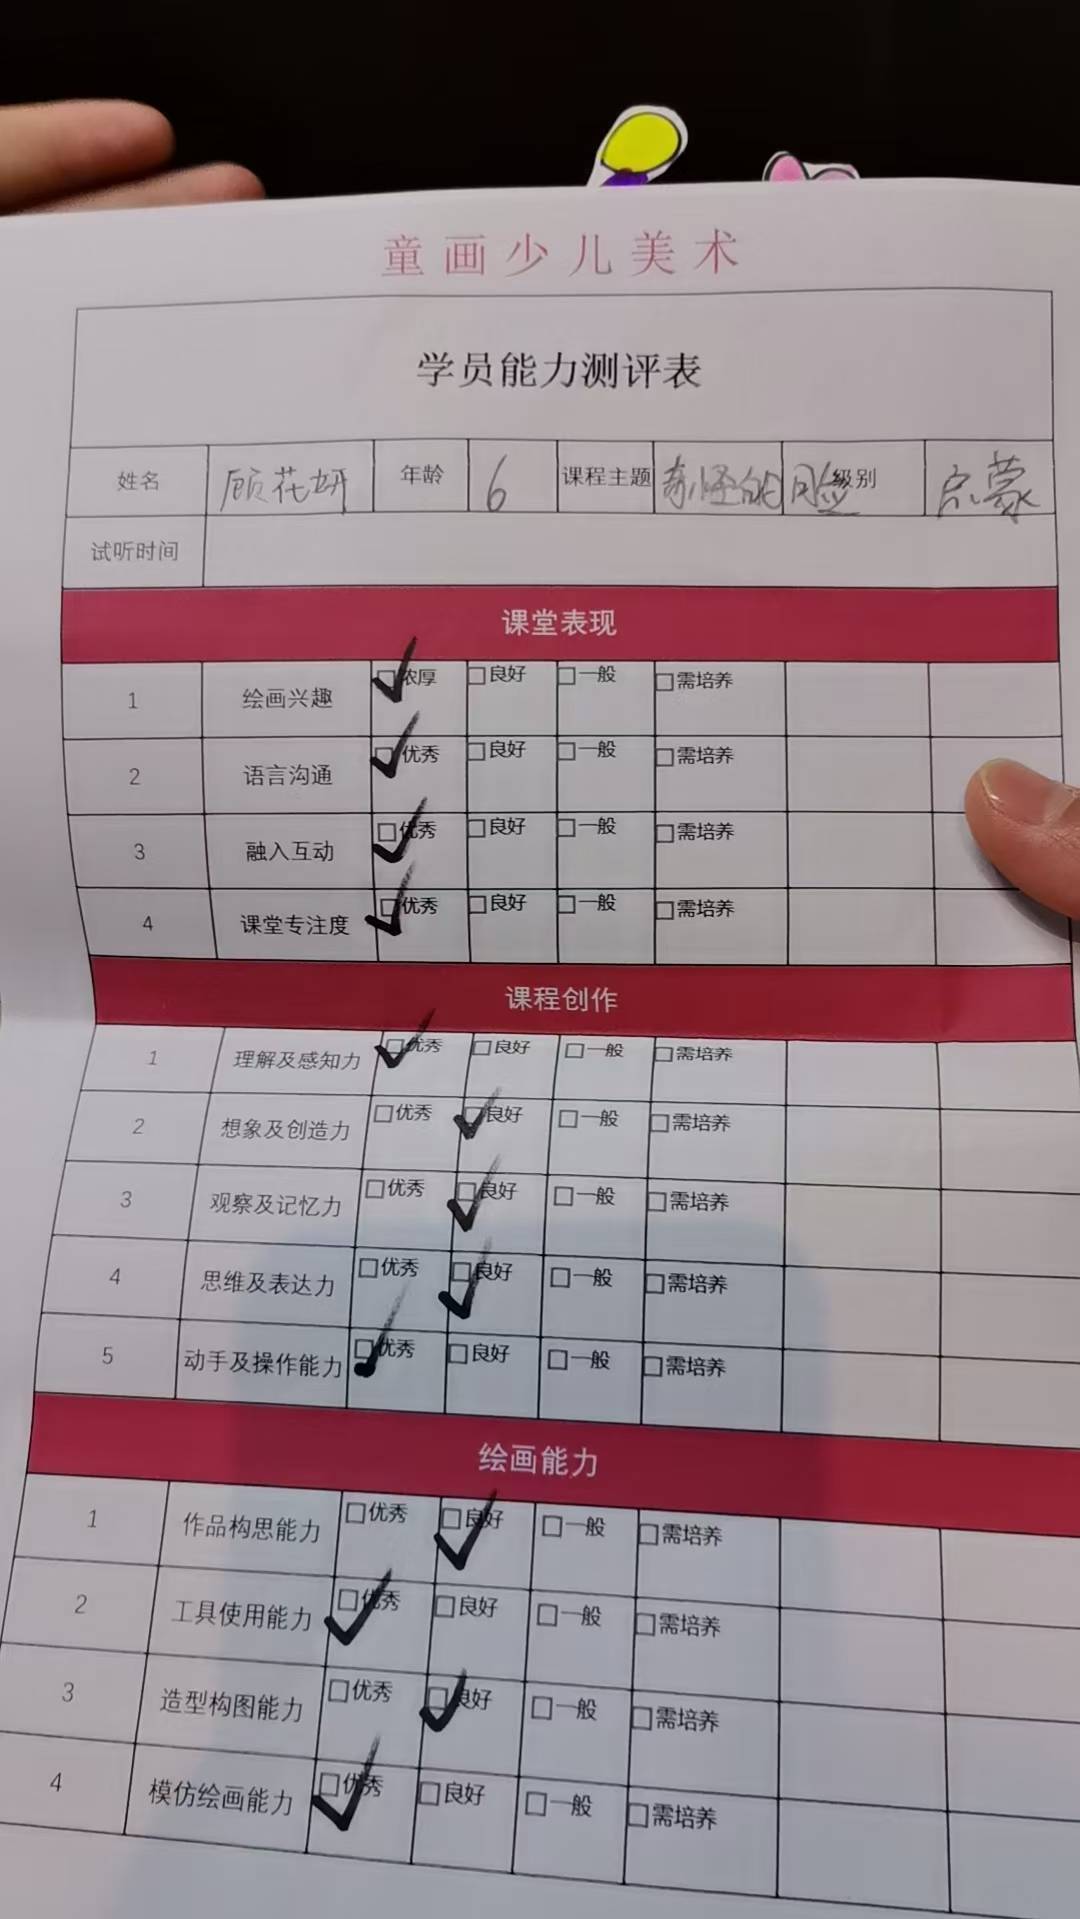 童画少儿美术
学员能力测评表
姓名 顾花妍 年龄 6 课程主题 奇怪的脸 级别 启蒙
试听时间
课堂表现
1 绘画兴趣 □浓厚 □良好 □一般 □需培养
2 语言沟通 □优秀 □良好 □一般 □需培养
3 融入互动 □优秀 □良好 □一般 □需培养
4 课堂专注度 □优秀 □良好 □一般 □需培养
课程创作
1 理解及感知力 □优秀 □良好 □一般 □需培养
2 想象及创造力 □优秀 □良好 □一般 □需培养
3 观察及记忆力 □优秀 □良好 □一般 □需培养
4 思维及表达力 □优秀 □良好 □一般 □需培养
5 动手及操作能力 □优秀 □良好 □一般 □需培养
绘画能力
1 作品构思能力 □优秀 □良好 □一般 □需培养
2 工具使用能力 □优秀 □良好 □一般 □需培养
3 造型构图能力 □优秀 □良好 □一般 □需培养
4 模仿绘画能力 □优秀 □良好 □一般 □需培养